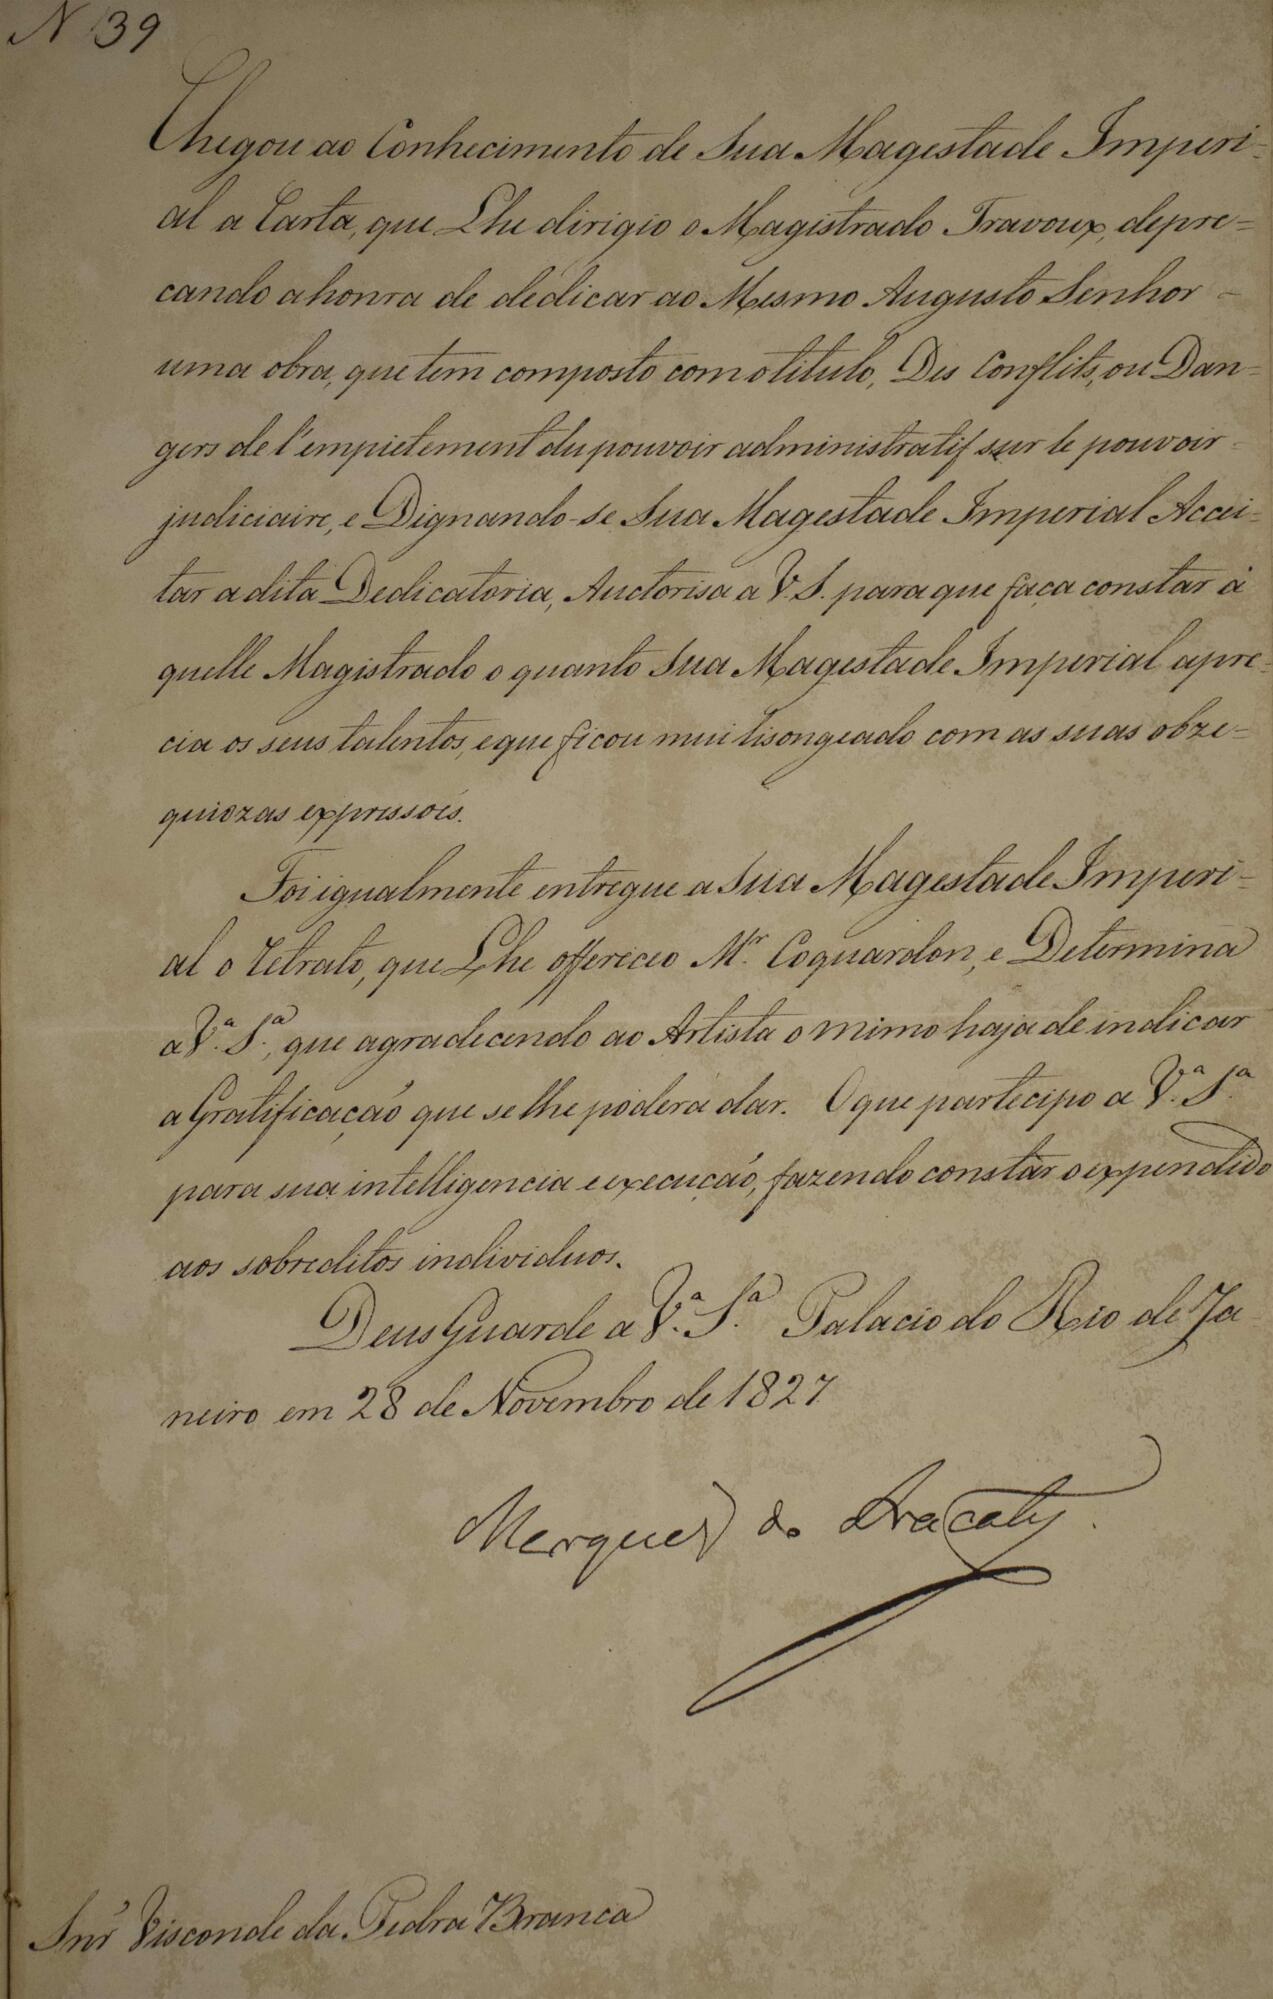 N 39
Chegou ao Conhecimento de Sua Magestade Imperi-
al a Carta, que Lhe dirigio o Magistrado Travoux, depre=
cando a honra de dedicar ao Mesmo Augusto Senhor -
uma obra, que tem composto com o titulo, Des Conflits, ou Dan=
gers de l'empietement du pouvoir administratif sur le pouvoir -
judiciaire, e Dignando-se Sua Magestade Imperial Accei-
tar a dita Dedicatoria, Auctorisa a V. S. para que faça constar à
quelle Magistrado o quanto Sua Magestade Imperial apre-
cia os seus talentos, e que ficou mui lisongeado com as suas obze=
quiozas expressoẽs.
Foi igualmente entregue a Sua Magestade Imperi=
al o retrato, que Lhe offereceo Mr. Coquardon, e Determina
a Vª. Sª., que agradecendo ao Artista o mimo haja de indicar
a Gratificação que se lhe poderá dar. O que partecipo a Vª. Sª.
para sua intelligencia e execução, fazendo constar o expendido
aos sobreditos individuos.
Deus Guarde a Vª. Sª. Palacio do Rio de Ja
neiro em 28 de Novembro de 1827
Marquez do Aracaty.
Snr. Visconde da Pedra Branca